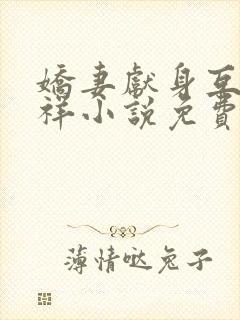 嬌妻獻身互
祥小說免費
薄情哒兔子